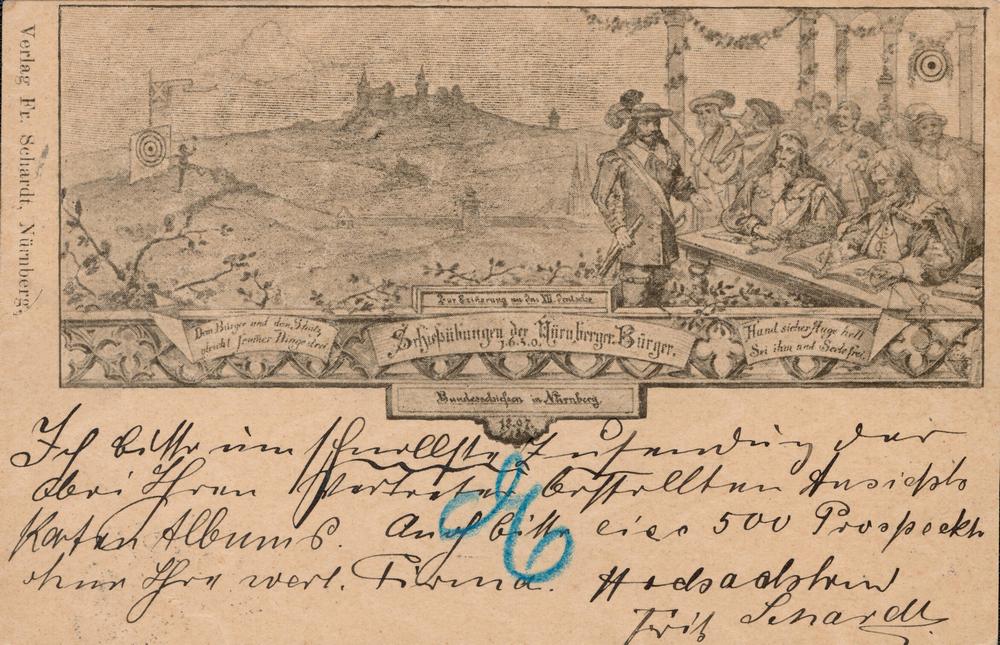 Verlag Fr. Schardt, Nürnberg.
Zur Erinerung an das XII. Deutsche
Dem Bürger und dem Schütz
Schießübungen der Nürnberger Bürger.
1650.
Hand sicher Auge hell
Sei ihm und Seele frei.
Bundesschießen in Nürnberg
1897
Ich bitte um schnellste Zusendung der
bei Ihren Vertreter bestellten Ansichts
Karten Albums. Auch bitte 500 Prospeckte
ohne Ihre wert. Firma.
Fritz Schardt